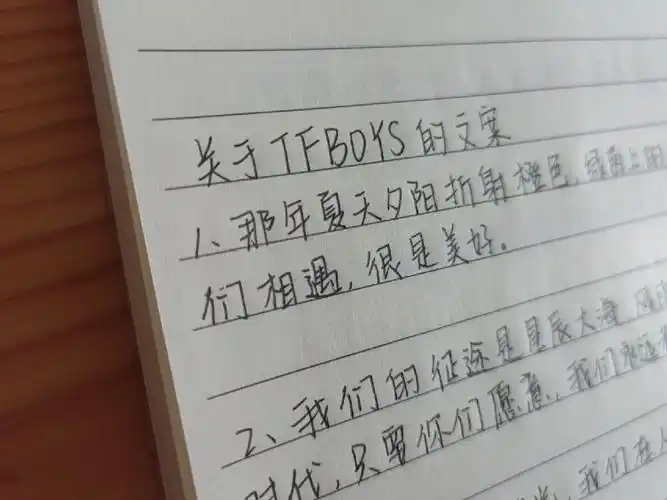 关于TFBOYS的文案
1、那年夏天夕阳折射橙色,绿
们相遇,很是美好。
2、我们的征途是星辰大海
时代,只要你们愿意,我们永远
我们在